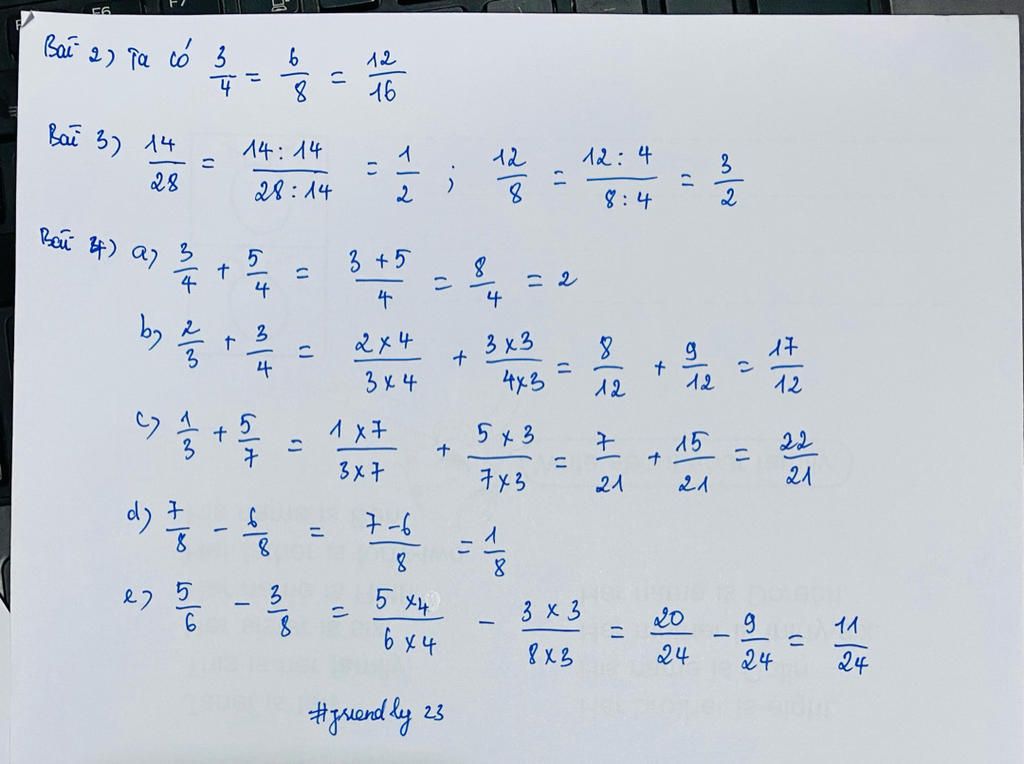 Bài 2) Ta có 3/4 = 6/8 = 12/16
Bài 3) 14/28 = 14:14/28:14 = 1/2 ; 12/8 = 12:4/8:4 = 3/2
Bài 4) a) 3/4 + 5/4 = 3+5/4 = 8/4 = 2
b) 2/3 + 3/4 = 2x4/3x4 + 3x3/4x3 = 8/12 + 9/12 = 17/12
c) 1/3 + 5/7 = 1x7/3x7 + 5x3/7x3 = 7/21 + 15/21 = 22/21
d) 7/8 - 6/8 = 7-6/8 = 1/8
e) 5/6 - 3/8 = 5x4/6x4 - 3x3/8x3 = 20/24 - 9/24 = 11/24
#friendly 23